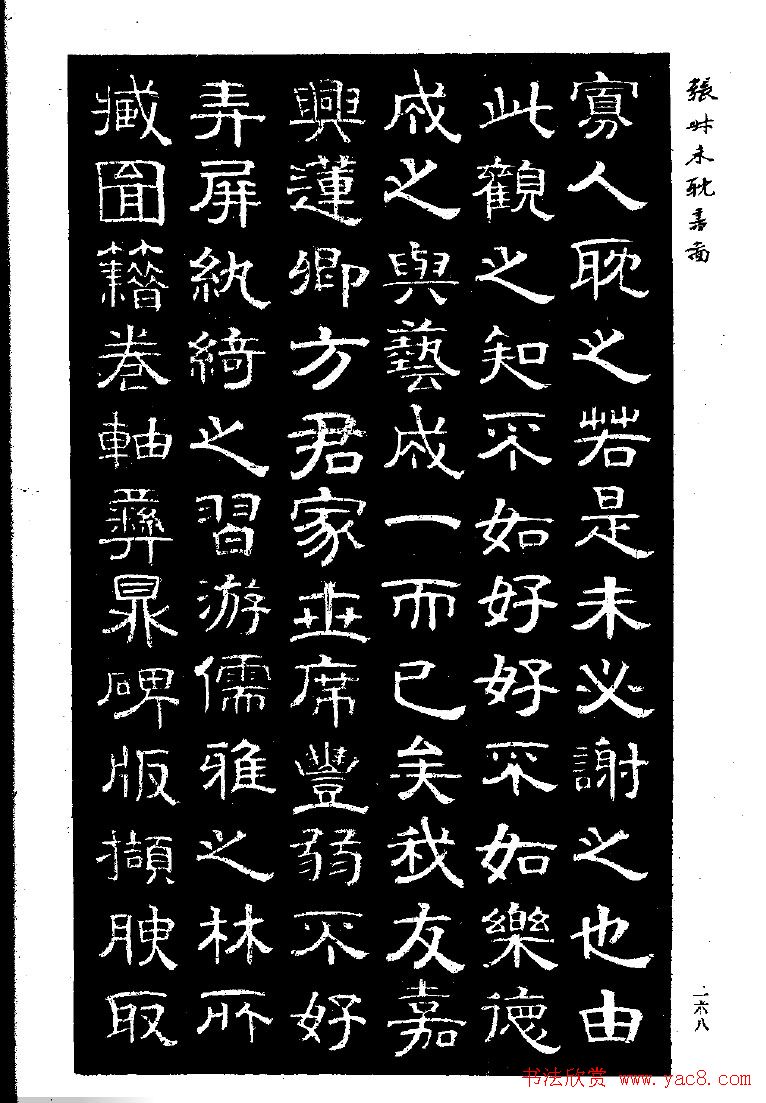 寡人耽之若是未必謝之也由
此觀之知不如好好不如樂德
成之與藝成一而已矣我友嘉
興蓮卿方君家世席豐弱不好
弄屏紈綺之習游儒雅之林所
藏圖籍卷軸彝鼎碑版擷腴取
張叔未耽書圖
一六八
书法欣赏 www.yac8.com